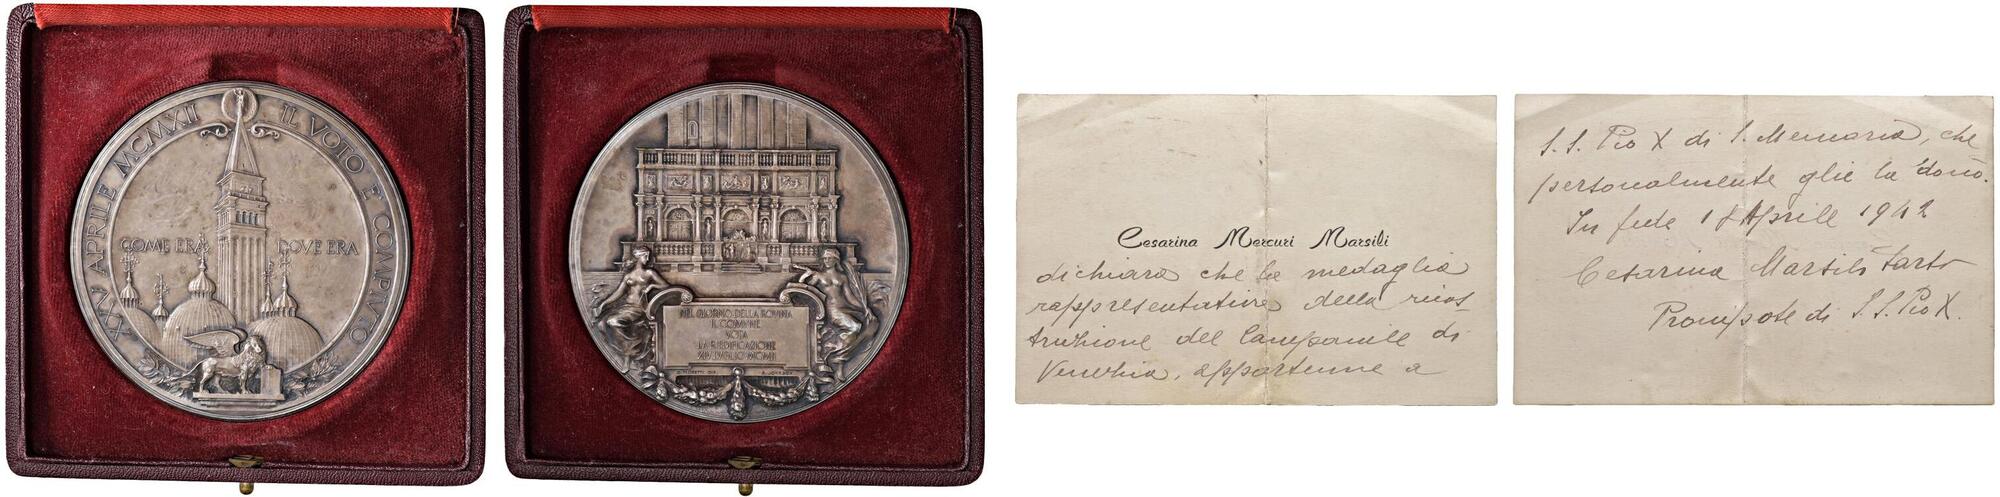 XXV APRILE MCMXII IL VOTO E COMPIVTO
COME ERA DOVE ERA
NEL GIORNO DELLA ROVINA
IL COMUNE
VOTA
LA RIEDIFICAZIONE
XIV LUGLIO MCMII
S. JOHNSON
Cesarina Mercuri Marsili
dichiara che la medaglia
rappresentativa della ricos-
truzione del Campanile di
Venezia, appartenne a
S. S. Pio X di S. Memoria, che
personalmente glie la donò.
In fede 18 Aprile 1942
Cesarina Marsili Sarto
Pronipote di S. S. Pio X.